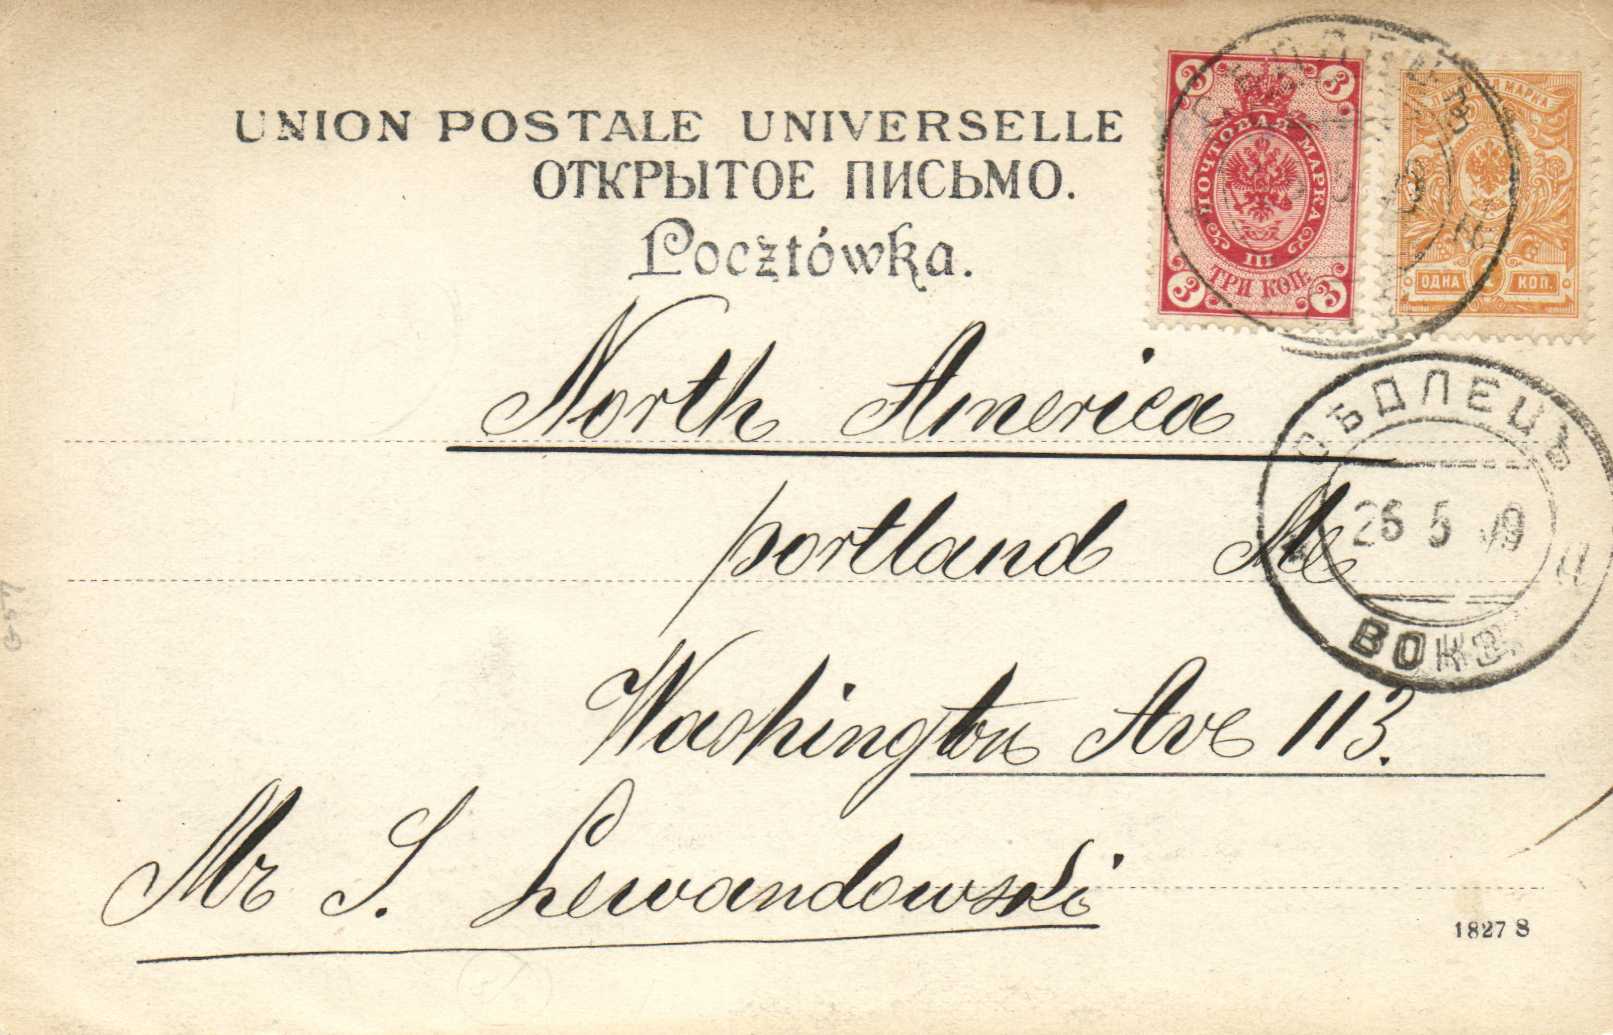 UNION POSTALE UNIVERSELLE
ОТКРЫТОЕ ПИСЬМО.
Pocztówka.
3 3
ПОЧТОВАЯ МАРКА
III
ТРИ КОП.
3 3
МАРКА
ОДНА 1 КОП.
North America
СѢДЛЕЦЪ
26 5 09
ВОКЗ.
portland Me
Washington Ave 113.
Mr S. Lewandowski
1827 S